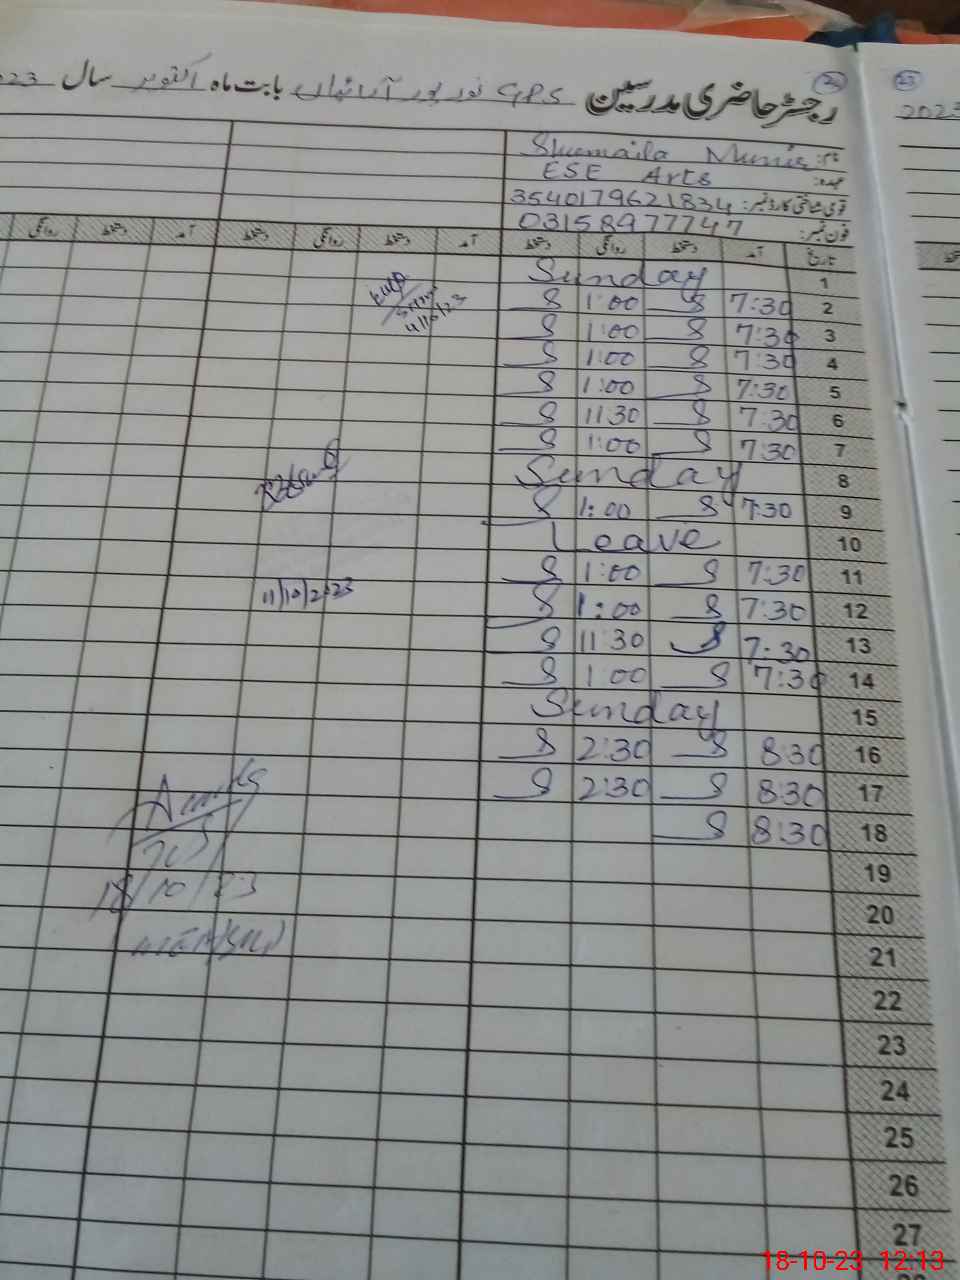 رجسٹر حاضری مدرسین GPS نور پور آرائیاں بابت ماہ اکتوبر سال 2023
23
2023
نام: Shumaila Munir
عہدہ: ESE Arts
قومی شناختی کارڈ نمبر: 3540179621834
فون نمبر: 03158977747
تاریخ آمد دستخط روانگی دستخط آمد دستخط روانگی دستخط آمد دستخط روانگی
1 Sunday
2 7:30 S 1:00 S
3 7:30 S 1:00 S
4 7:30 S 1:00 S
5 7:30 S 1:00 S
6 7:30 S 11:30 S
7 7:30 S 1:00 S
8 Sunday
9 7:30 S 1:00 S
10 Leave
11 7:30 S 1:00 S
12 7:30 S 1:00 S
13 7:30 S 11:30 S
14 7:30 S 1:00 S
15 Sunday
16 8:30 S 2:30 S
17 8:30 S 2:30 S
18 8:30 S
19
20
21
22
23
24
25
26
27
4/10/23
11/10/2023
18/10/23
18-10-23 12:13